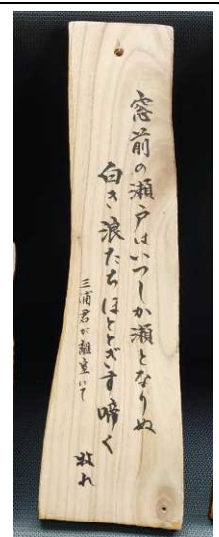 窓前の瀬戸はいつしか瀬となりぬ
白き浪たちほとゝぎす啼く
三浦君が離室にて
牧水